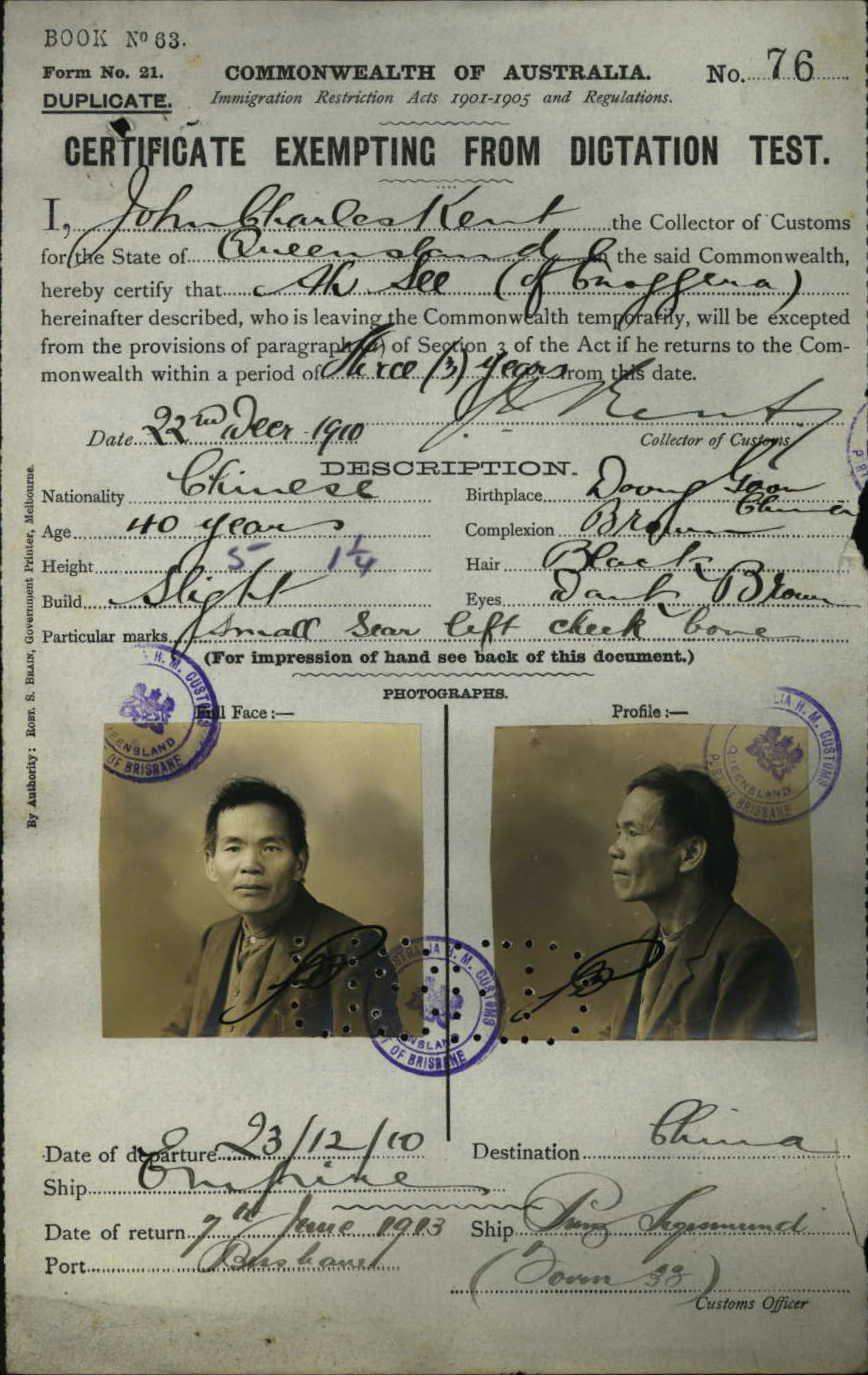 BOOK Nº 63.
Form No. 21. COMMONWEALTH OF AUSTRALIA. No. 76
DUPLICATE. Immigration Restriction Acts 1901-1905 and Regulations.
CERTIFICATE EXEMPTING FROM DICTATION TEST.
I, John Charles Kent the Collector of Customs
for the State of Queensland in the said Commonwealth,
hereby certify that Ah See (of Enoggera)
hereinafter described, who is leaving the Commonwealth temporarily, will be excepted
from the provisions of paragraph (a) of Section 3 of the Act if he returns to the Com-
monwealth within a period of Three (3) years from this date.
J C Kent
Date 22nd Decr 1910 Collector of Customs
DESCRIPTION.
Nationality Chinese Birthplace Doong Goon China
Age 40 years Complexion Brown
Height 5 1 1/4 Hair Black
Build Slight Eyes Dark Brown
Particular marks Small Scar left cheek bone
(For impression of hand see back of this document.)
PHOTOGRAPHS.
Full Face :— Profile :—
H. M. CUSTOMS
QUEENSLAND
PORT OF BRISBANE
AUSTRALIA H. M. CUSTOMS
QUEENSLAND
PORT OF BRISBANE
AUSTRALIA H. M. CUSTOMS
QUEENSLAND
PORT OF BRISBANE
Date of departure 23/12/10 Destination China
Ship Empire
Date of return 7th June 1913 Ship Prinz Sigismund
Port Brisbane
Customs Officer
By Authority: ROBT. S. BRAIN, Government Printer, Melbourne.